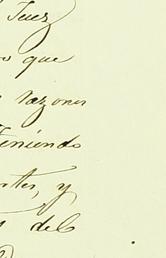 Juez
que
razones
Teniendo
y
del